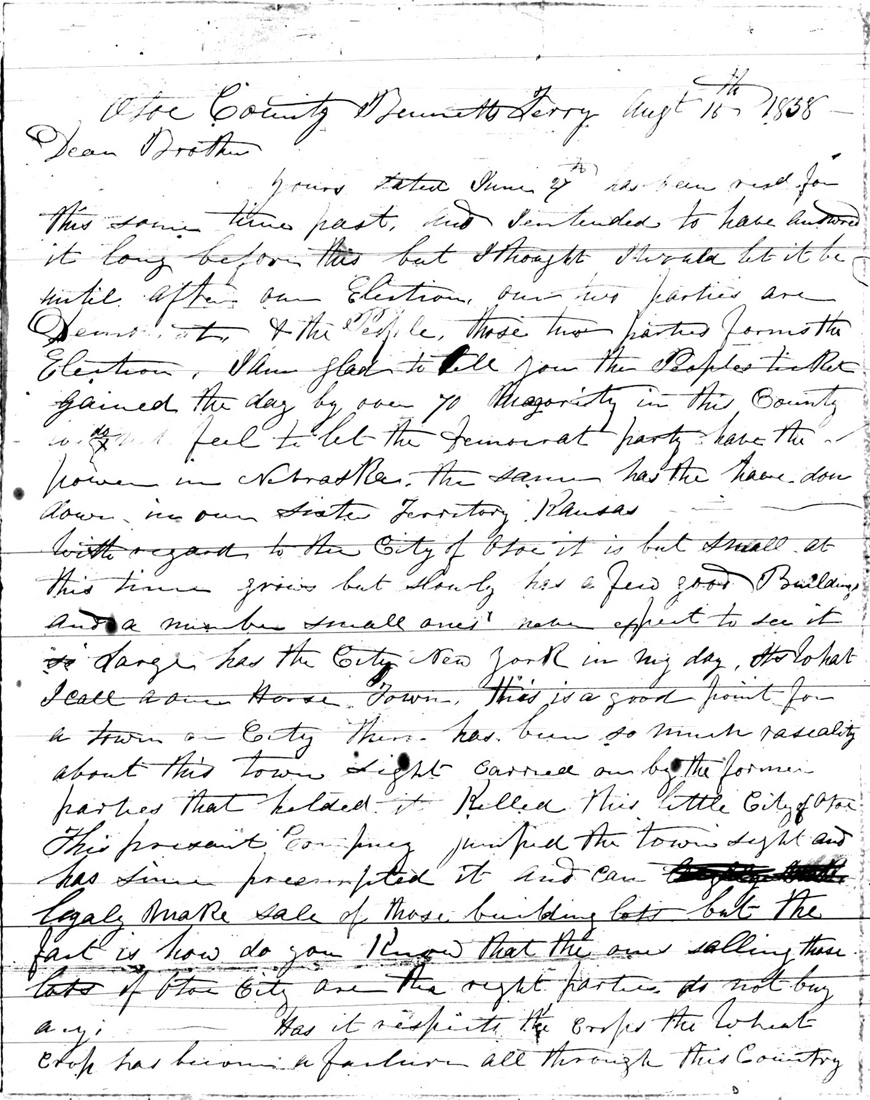 Otoe County Bennetts Ferry Augt 15th 1858
Dear Brother
yours dated June 27th has been recd for
this some time past, and I entended to have answred
it long before this but I thought I would let it be
until after our Election, our two parties are
& the People, those two parties forms the
Election, I Am glad to tell you the Peoples ticket
gained the day by over 70 Majority in this County
do not feel to let the Democrat party have the
power in Nebraska, the same has the have don
down in our Sister Territory Kansas
With regard to the City of Otoe it is but small at
this time grows but slowly has a few good Buildings
and a number small ones never expect to see it
Large has the City New York in my day, Its What
I call a one Horse Town, This is a good point for
a town or City there has been so much rascality
about this town sight carried on by the former
parties that holded it Killed this little City of Otoe
This present Company jumped the town sight and
has since preempted it and can
legaly Make sale of those building lots but the
fact is how do you Know that the ones salling those
lots of Otoe City are the right parties do not buy
any; Has it respects the Crops the Wheat
Crop has become a faileure all through this Country